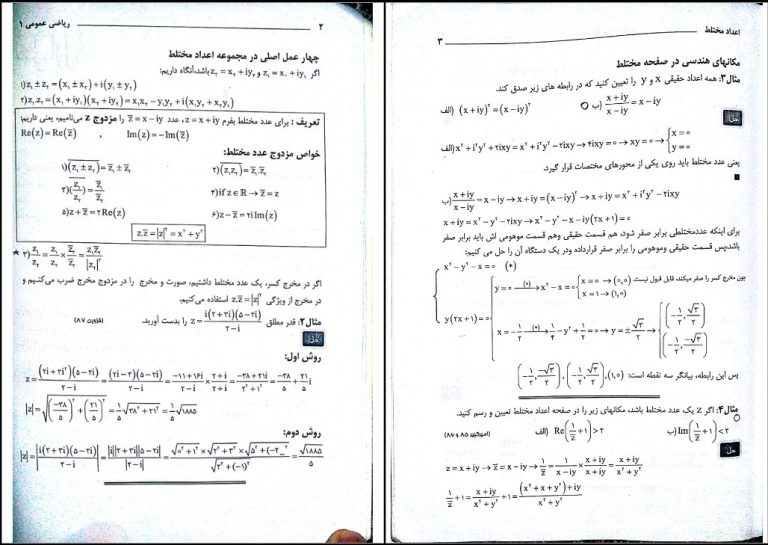 ریاضی عمومی ۱
۲
چهار عمل اصلی در مجموعه اعداد مختلط
اگر z₁ = x₁ + iy₁ و z₂ = x₂ + iy₂ باشد،آنگاه داریم:
۱) z₁ ± z₂ = (x₁ ± x₂) + i(y₁ ± y₂)
۲) z₁.z₂ = (x₁ + iy₁)(x₂ + iy₂) = x₁x₂ − y₁y₂ + i(x₁y₂ + x₂y₁)
تعریف : برای عدد مختلط بفرم z = x + iy، عدد z̄ = x − iy را مزدوج z می‌نامیم، یعنی داریم:
Re(z) = Re(z̄) , Im(z) = −Im(z̄)
خواص مزدوج عدد مختلط:
۱) (z₁ ± z₂)‾ = z̄₁ ± z̄₂ ۲) (z₁z₂)‾ = z̄₁.z̄₂
۳) (z₁/z₂)‾ = z̄₁/z̄₂ ۴) if z ∈ ℝ → z̄ = z
۵) z + z̄ = ۲Re(z) ۶) z − z̄ = ۲i Im(z)
z.z̄ = |z|² = x² + y²
★ ۳) z₁/z₂ = z₁/z₂ × z̄₂/z̄₂ = z₁z̄₂/|z₂|²
اگر در مخرج کسر، یک عدد مختلط داشتیم، صورت و مخرج را در مزدوج مخرج ضرب می‌کنیم و
در مخرج از ویژگی z.z̄ = |z|² استفاده می‌کنیم.
مثال۲: قدر مطلق z = i(۲ + ۳i)(۵ − ۲i)/(۲ − i) را بدست آورید.
حل:
روش اول:
z = (۲i + ۳i²)(۵ − ۲i)/(۲ − i) = (۲i − ۳)(۵ − ۲i)/(۲ − i) = (−۱۱ + ۱۶i)/(۲ − i) × (۲ + i)/(۲ + i) = (−۳۸ + ۲۱i)/(۲² + ۱²) = −۳۸/۵ + ۲۱/۵ i
|z| = √((−۳۸/۵)² + (۲۱/۵)²) = ۱/۵ √(۳۸² + ۲۱²) = ۱/۵ √۱۸۸۵
روش دوم:
|z| = |i(۲ + ۳i)(۵ − ۲i)/(۲ − i)| = |i||۲ + ۳i||۵ − ۲i|/|۲ − i| = √(۰² + ۱²) × √(۲² + ۳²) × √(۵² + (−۲)²)/√(۲² + (−۱)²) = √۱۸۸۵/۵
اعداد مختلط
۳
مکانهای هندسی در صفحه مختلط
مثال۳: همه اعداد حقیقی x و y را تعیین کنید که در رابطه های زیر صدق کند.
الف) (x + iy)² = (x − iy)² ب) (x + iy)/(x − iy) = x − iy
حل:
الف) x² + i²y² + ۲ixy = x² + i²y² − ۲ixy → ۴ixy = ۰ → xy = ۰ → { x = ۰ y = ۰
یعنی عدد مختلط باید روی یکی از محورهای مختصات قرار گیرد.
ب) (x + iy)/(x − iy) = x − iy → x + iy = (x − iy)² → x + iy = x² + i²y² − ۲ixy
x + iy = x² − y² − ۲ixy → x² − y² − x − iy(۲x + ۱) = ۰
برای اینکه عددمختلطی برابر صفر شود، هم قسمت حقیقی وهم قسمت موهومی اش باید برابر صفر
باشد،پس قسمت حقیقی وموهومی را برابر صفر قرارداده ودر یک دستگاه آن را حل می کنیم:
x² − y² − x = ۰ (*)
چون مخرج کسر را صفر میکند، قابل قبول نیست.
y = ۰ →(*) x² − x = ۰ { x = ۰ → (۰,۰) x = ۱ → (۱,۰)
y(۲x + ۱) = ۰
x = −۱/۲ →(*) ۱/۴ − y² + ۱/۲ = ۰ → y = ± √۳/۲ → { (−۱/۲, √۳/۲) (−۱/۲, −√۳/۲)
پس این رابطه، بیانگر سه نقطه است: (۱,۰), (−۱/۲, √۳/۲), (−۱/۲, −√۳/۲)
مثال۴: اگر z یک عدد مختلط باشد، مکانهای زیر را در صفحه اعداد مختلط تعیین و رسم کنید.
الف) Re(۱/z̄ + ۱) > ۲ ب) Im(۱/z̄ + ۱) < ۲
حل:
z = x + iy → z̄ = x − iy → ۱/z̄ = ۱/(x − iy) × (x + iy)/(x + iy) = (x + iy)/(x² + y²)
۱/z̄ + ۱ = (x + iy)/(x² + y²) + ۱ = ((x² + x + y²) + iy)/(x² + y²)